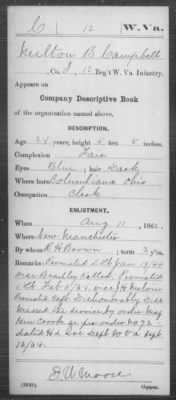 C 12 W. Va.
Milton B Campbell
Co. , 12 Reg't W. Va. Infantry.
Appears on
Company Descriptive Book
of the organization named above.
DESCRIPTION.
Age 24 years; height 5 feet 8 inches.
Complexion Fair
Eyes Blue; hair Dark
Where born Columbiana Ohio
Occupation Clerk
ENLISTMENT.
When Aug 11, 186 .
Where New Manchester
By whom R H Brown; term 3 y'rs.
Remarks: Promoted 2 Lt Jan 19/64
vice Bradley Killed. Promoted
1 Lt Feb 5/64 vice H
Promoted Capt. Dishonorably Dis
missed the service by order Maj
Gen Crook pr order No 72
dated Hd Qrs Dept W Va Sept
12/64.
J W Moore
Copyist.